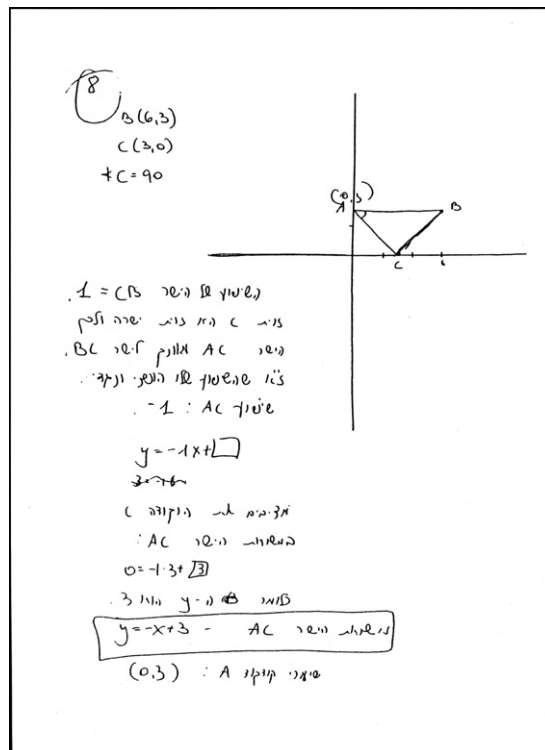 8
B(6,3)
C(3,0)
∢C=90
(0,3)
A
B
C
6
השיפוע של הישר CB = 1.
זוית C היא זוית ישרה ולכן
הישר AC מאונך לישר BC.
ז"א שהשיפוע שלו הופכי ונגדי.
שיפוע AC : 1-.
y=-1x+□
מציבים את הנקודה C
במשוואת הישר AC:
0=-1·3+3
כלומר ה-y הוא 3.
משוואת הישר AC - y=-x+3
שיעורי קודקוד A : (0,3)